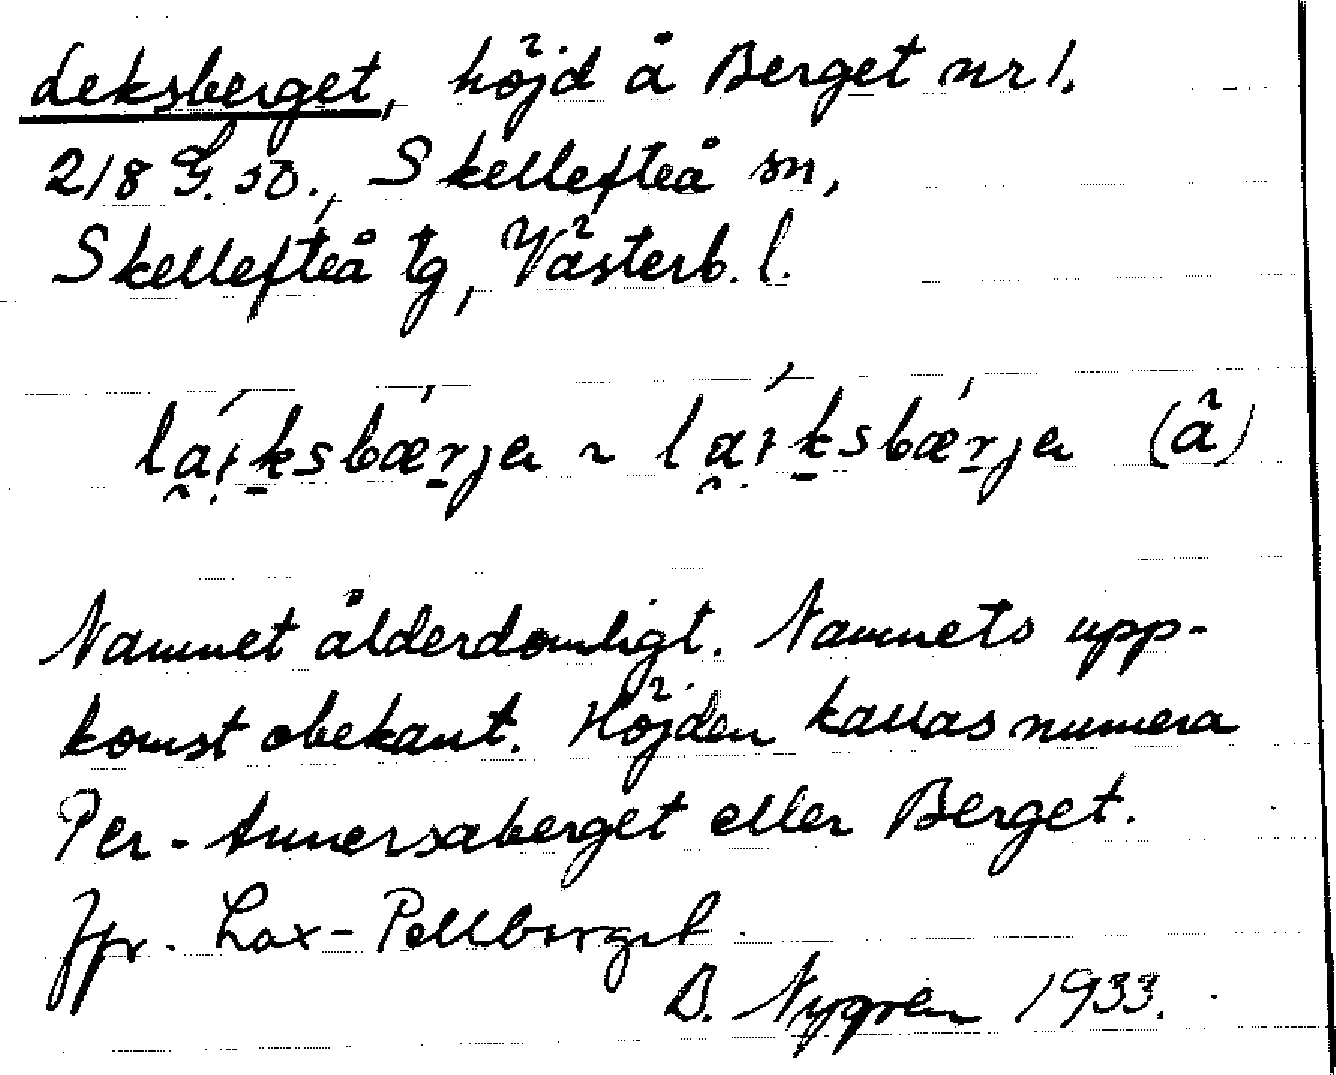 Leksberget, höjd å Berget nr 1.
2/8 G.SO., Skellefteå sn,
Skellefteå tg, Västerb. l.
la̯i̯ksbærjɐ ~ la̯i̯ksbærjɐ (å)
Namnet ålderdomligt. Namnets upp-
komst obekant. Höjden kallas numera
Per-Annersaberget eller Berget.
Jfr. Lax-Pellberget.
B. Nygren 1933.